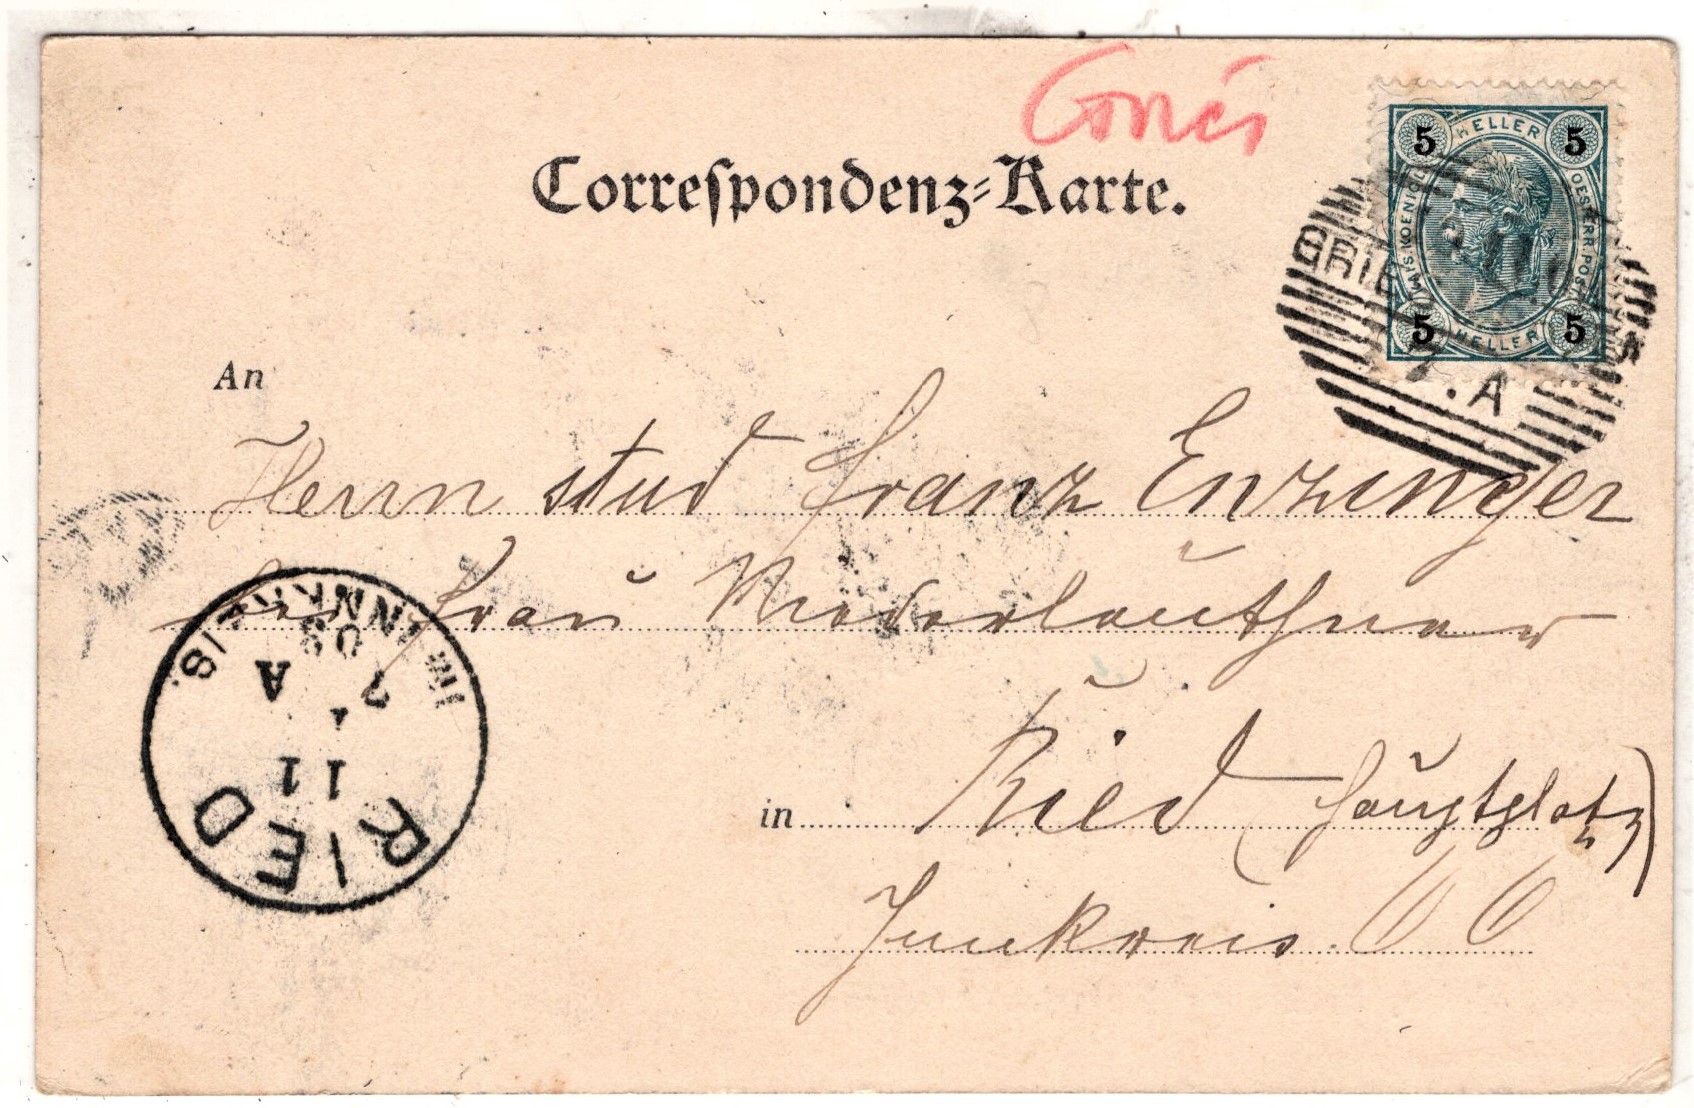 Correspondenz-Karte.
5 HELLER 5
KAIS. KOENIGL. OESTERR. POST
5 HELLER 5
A
An
Herrn stud Franz Enzinger
bei Frau Niederleuthner
in Ried (Hauptplatz)
Innkreis. OÖ
RIED
11
A
IM INNKREIS.